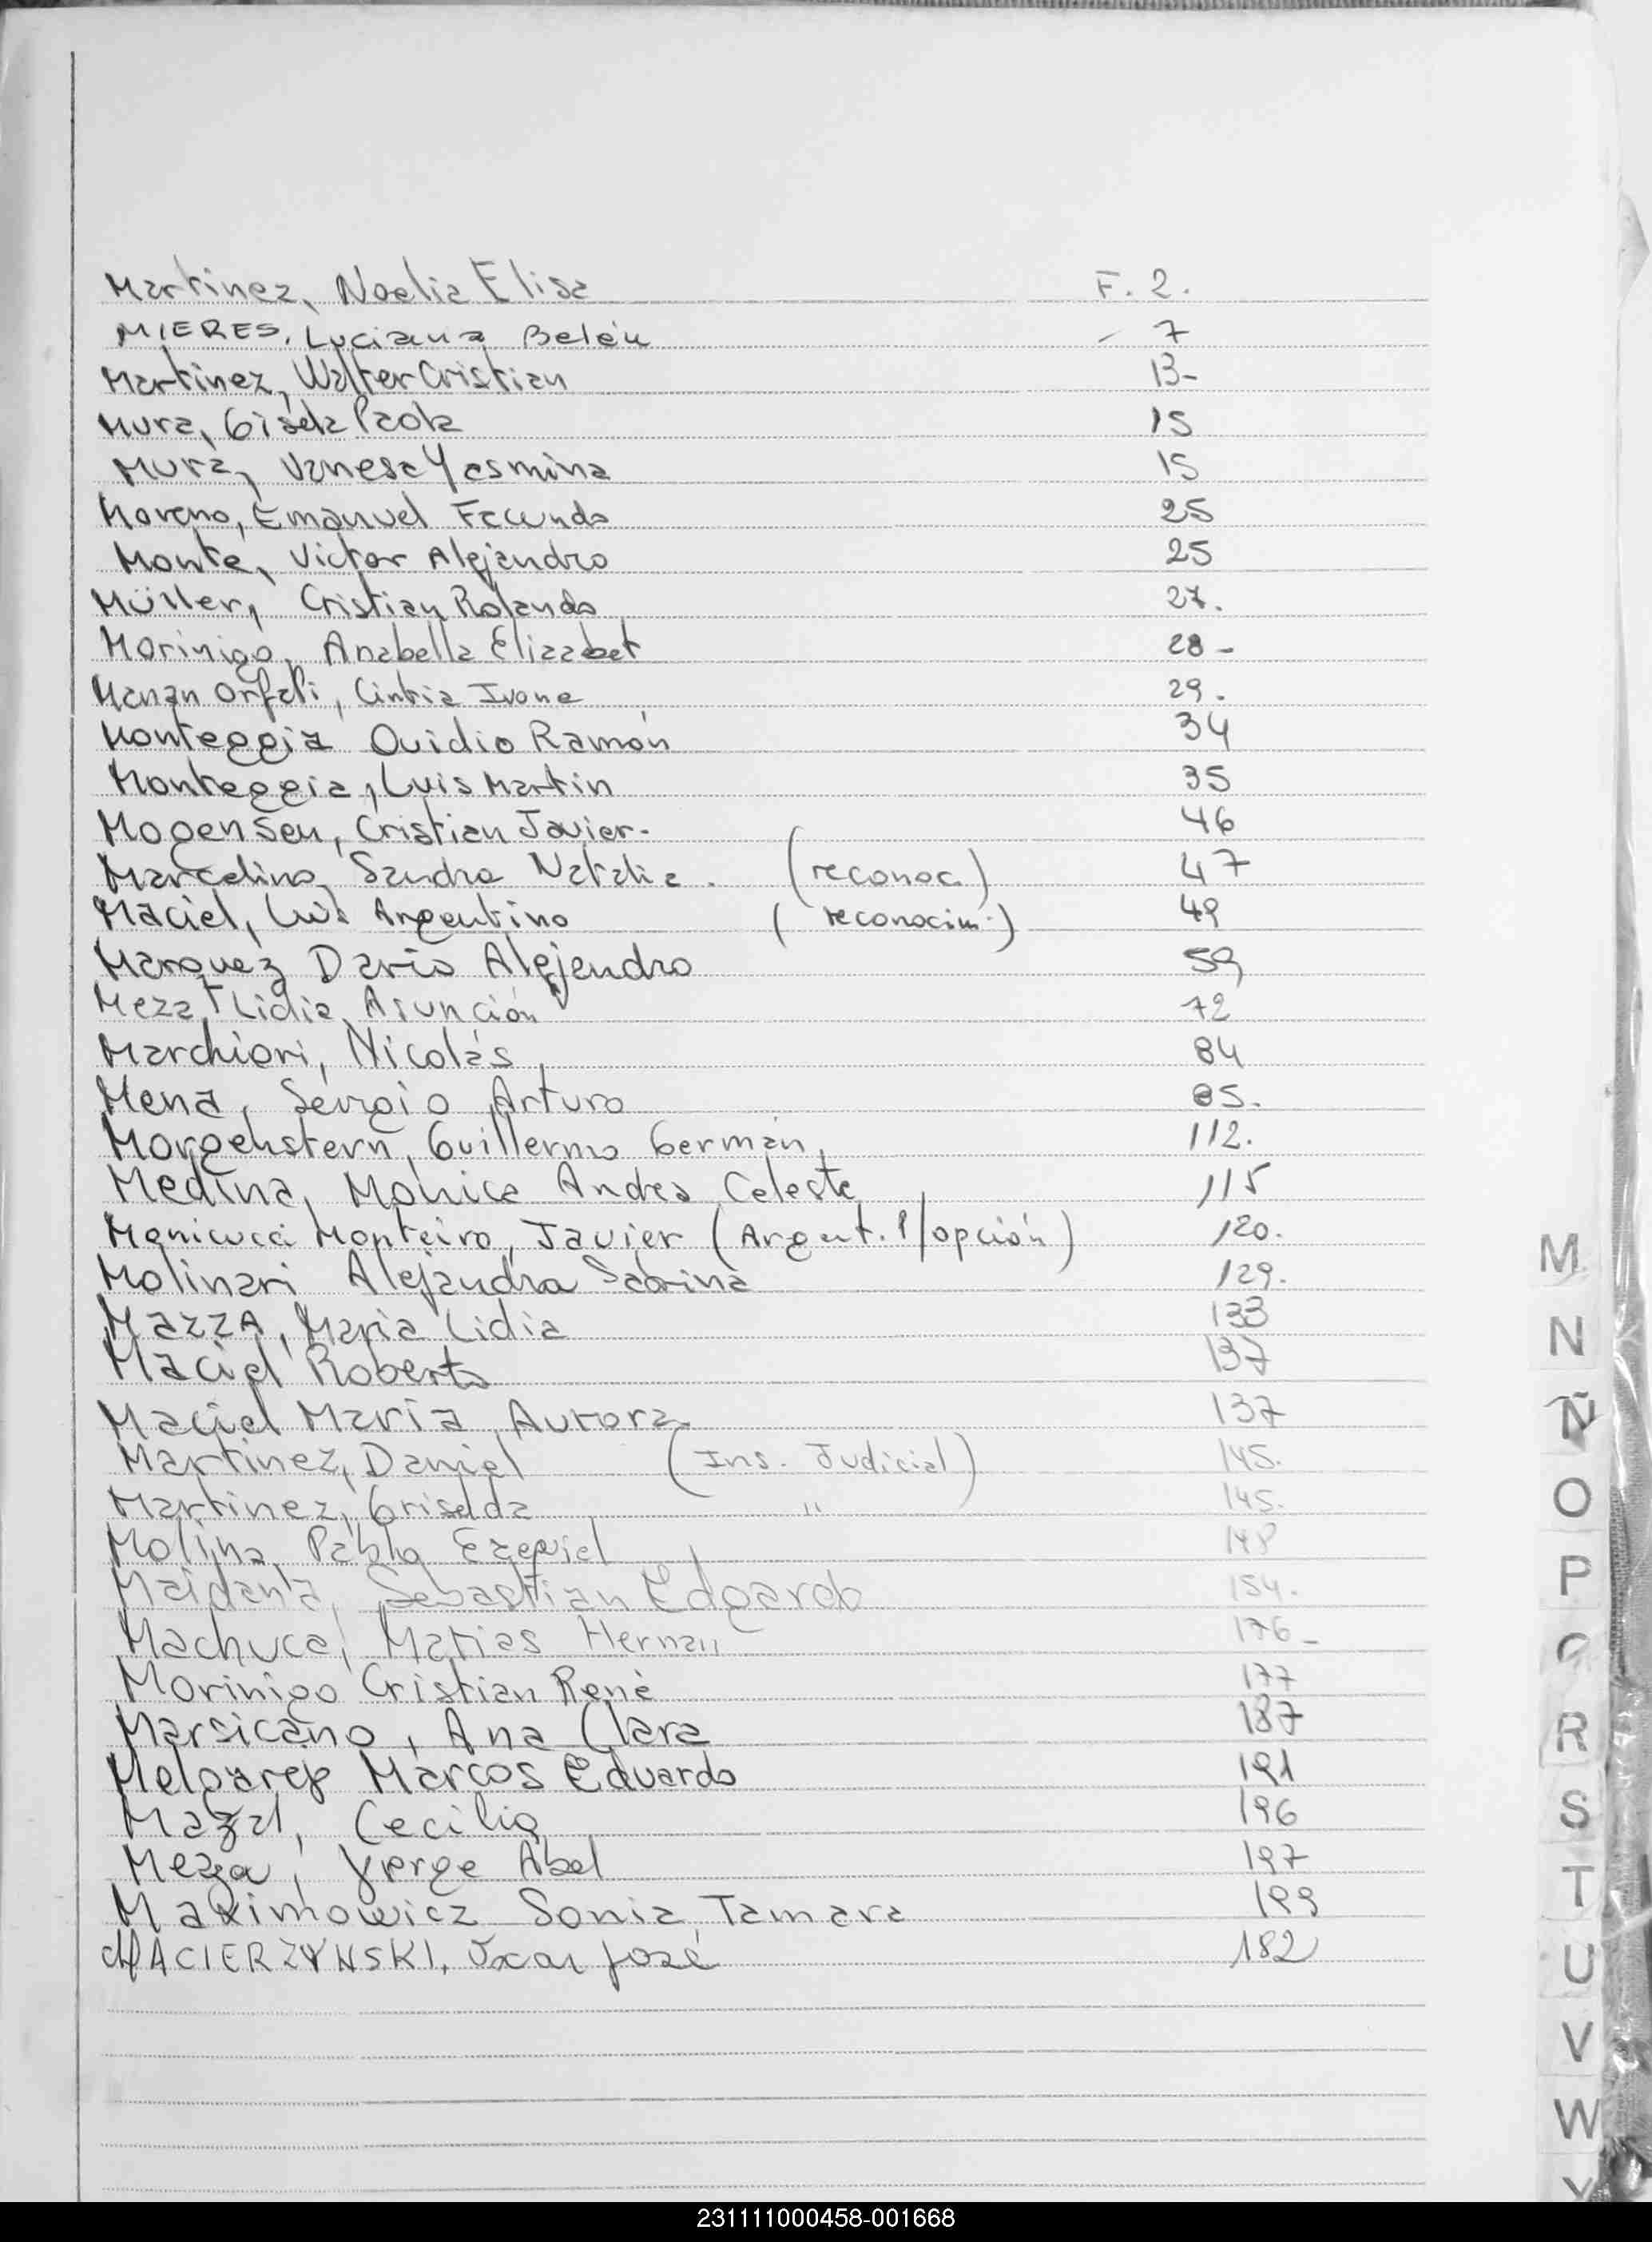 Martinez, Noelia Elisa F. 2.
MIERES, Luciana Belén - 7
Martinez, Walter Cristian 13-
Mura, Gisela Paola 15
Mura, Vanesa Yasmina 15
Moreno, Emanuel Facundo 25
Monte, Victor Alejandro 25
Müller, Cristian Rolando 27.
Morinigo, Anabella Elizabet 28-
Manan Orfali, Cintia Ivone 29.
Monteggia Ovidio Ramón 34
Monteggia, Luis Martin 35
Mogensen, Cristian Javier. 46
Marcelino, Sandra Natalia. (reconoc.) 47
Maciel, Luis Argentino (reconocim.) 49
Marquez Dario Alejandro 59
Meza, Lidia Asunción 72
Marchiori, Nicolás 84
Mena, Sergio Arturo 85.
Morgenstern, Guillermo Germán 112.
Medina, Monica Andrea Celeste 115
Manicucci Monteiro, Javier (Argent. P/opción) 120.
Molinari Alejandra Sabrina 129.
MazzA, Maria Lidia 133
Maciel Roberto 137
Maciel Maria Aurora 137
Martinez, Daniel (Ins. Judicial) 145.
Martinez, Griselda " 145.
Molina, Pablo Ezequiel 148
Maidana, Sebastian Edgardo 154.
Machuca, Matias Hernan 176-
Morinigo Cristian René 177
Marsicano, Ana Clara 187
Melgarej Marcos Eduardo 191
Mazal, Cecilia 196
Meza, Jorge Abel 197
Maximowicz Sonia Tamara 199
MACIERZYNSKI, Oscar José 182
M
N
Ñ
O
P
Q
R
S
T
U
V
W
231111000458-001668